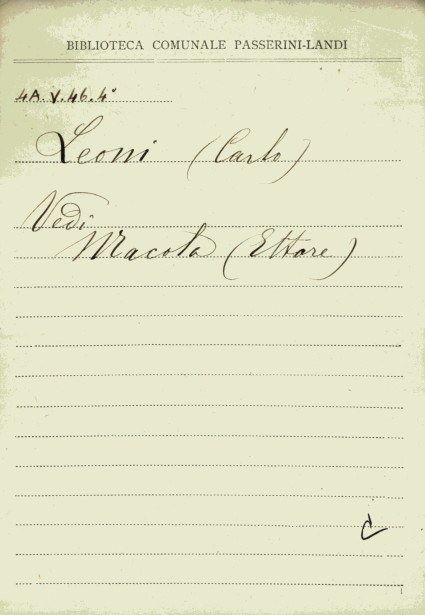 BIBLIOTECA COMUNALE PASSERINI-LANDI
4A.V.46.4°
Leoni (Carlo)
Vedi
Macola (Ettore)